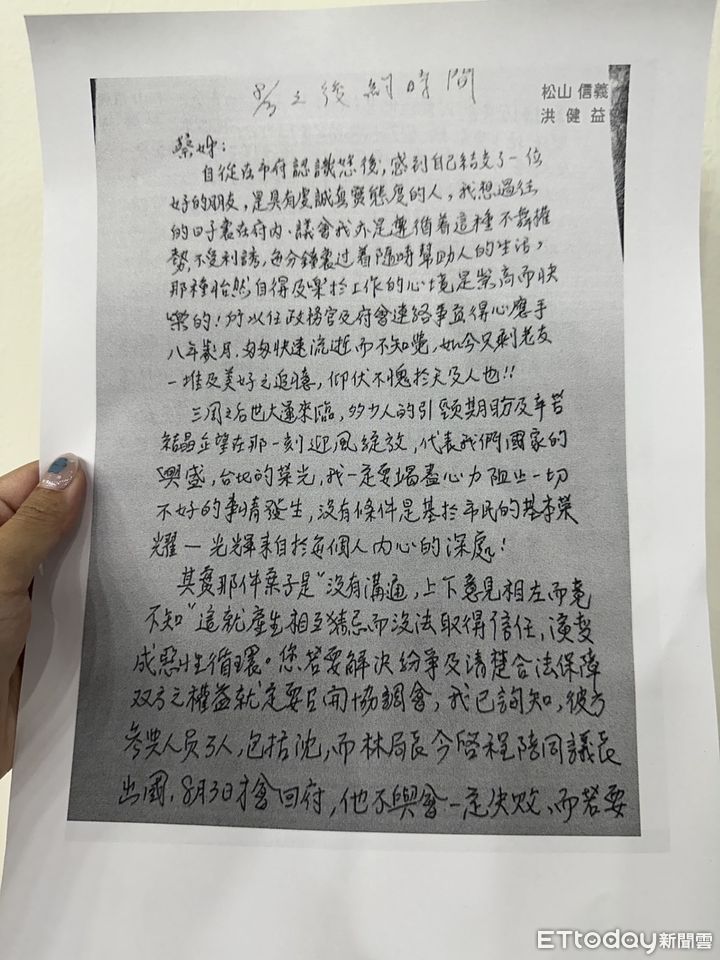 後 時間
松山 信義
洪健益
蔡姊：
自從在市府認識您後，感到自己結交了一位
好的朋友，是具有虔誠真實態度的人，我想過往
的日子裏在府內、議會我亦是遵循着這種不舞權
勢，不受利誘，每分鐘裏过着隨時幫助人的生活，
那種怡然自得及樂於工作的心境，是崇高而快
樂的！所以任政務官及府會連絡事益得心應手
八年歲月，匆匆快速流逝而不知覺，如今只剩老友
一堆及美好之追憶，仰伏不愧於天及人也!!
三周之后世大運來臨，多少人的引頸期盼及辛苦
結晶企望在那一刻迎風綻放，代表我們國家的
興盛，台北的榮光，我一定要竭盡心力阻止一切
不好的事情發生，沒有條件是基於市民的基本榮
耀－光輝來自於每個人內心的深處！
其實那件案子是"沒有溝通，上下意見相左而竟
不知"這就產生相互猜忌而沒法取得信任，演变
成惡性循環。您若要解決紛爭及清楚合法保障
双方之權益就一定要召開協調會，我已詢知，彼方
參與人员3人，包括沈，而林局長今啓程陪同議長
出國，8月3日才會回府，他不與會一定失敗，而若要
ETtoday新聞雲